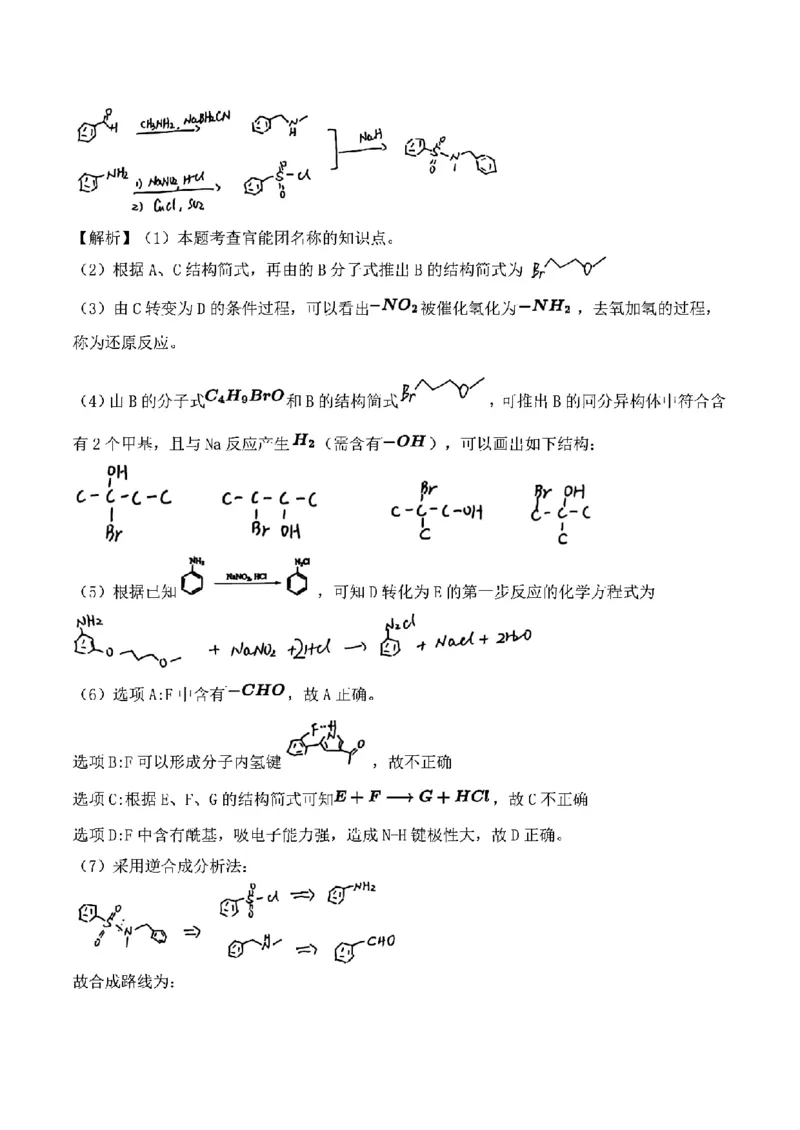 CH3NH2, NaBH2CN
NaH
1) NaNO2, HCl
2) CuCl, SO2
【解析】（1）本题考查官能团名称的知识点。
（2）根据 A、C结构简式，再由的 B 分子式推出 B 的结构简式为
（3）由 C 转变为 D 的条件过程，可以看出-NO2被催化氧化为-NH2，去氧加氢的过程，
称为还原反应。
（4）由 B 的分子式C4H9BrO和 B 的结构简式 Br O ，可推出 B 的同分异构体中符合含
有 2 个甲基，且与 Na 反应产生H2（需含有-OH），可以画出如下结构：
OH Br Br OH
C-C-C-C C-C-C-C C-C-C-OH C-C-C
Br Br OH C C
NH2 NaNO2, HCl N2Cl
（5）根据已知 ，可知 D 转化为 E 的第一步反应的化学方程式为
NH2 N2Cl
+ NaNO2 +2HCl → + NaCl + 2H2O
（6）选项 A:F 中含有-CHO，故 A 正确。
选项 B:F 可以形成分子内氢键 ，故不正确
选项 C:根据 E、F、G 的结构简式可知E + F ⟶ G + HCl，故 C 不正确
选项 D:F 中含有酰基，吸电子能力强，造成 N-H 键极性大，故 D 正确。
（7）采用逆合成分析法：
Cl ⇒ NH2
⇒
⇒ CHO
故合成路线为：